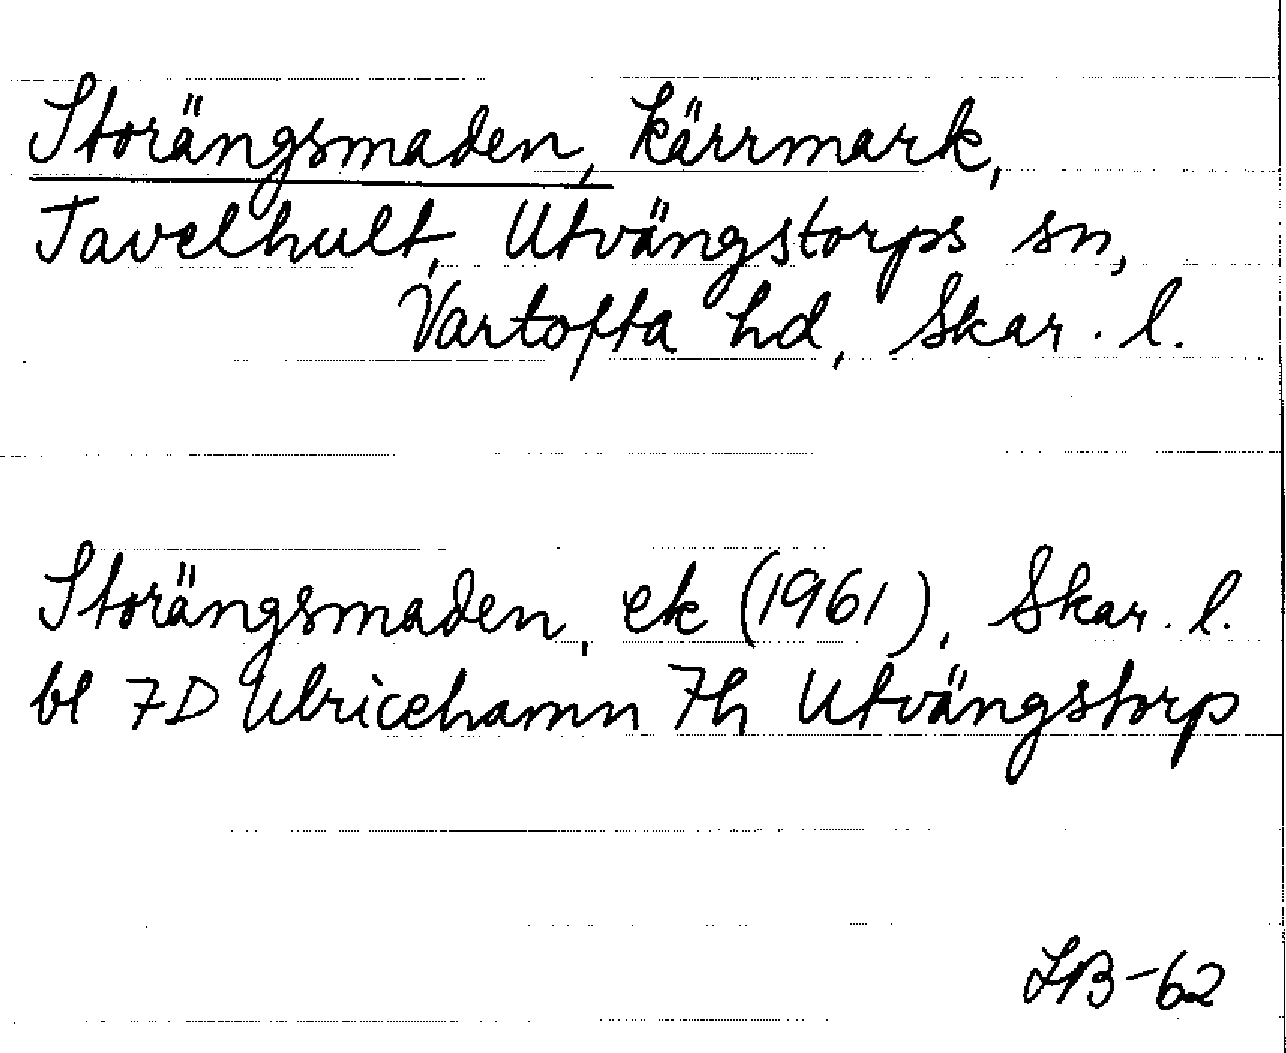 Storängsmaden, kärrmark,
Tavelhult, Utvängstorps sn,
Vartofta hd, Skar. l.
Storängsmaden, ek (1961), Skar. l.
bl 7D Ulricehamn 7h Utvängstorp
LB-62